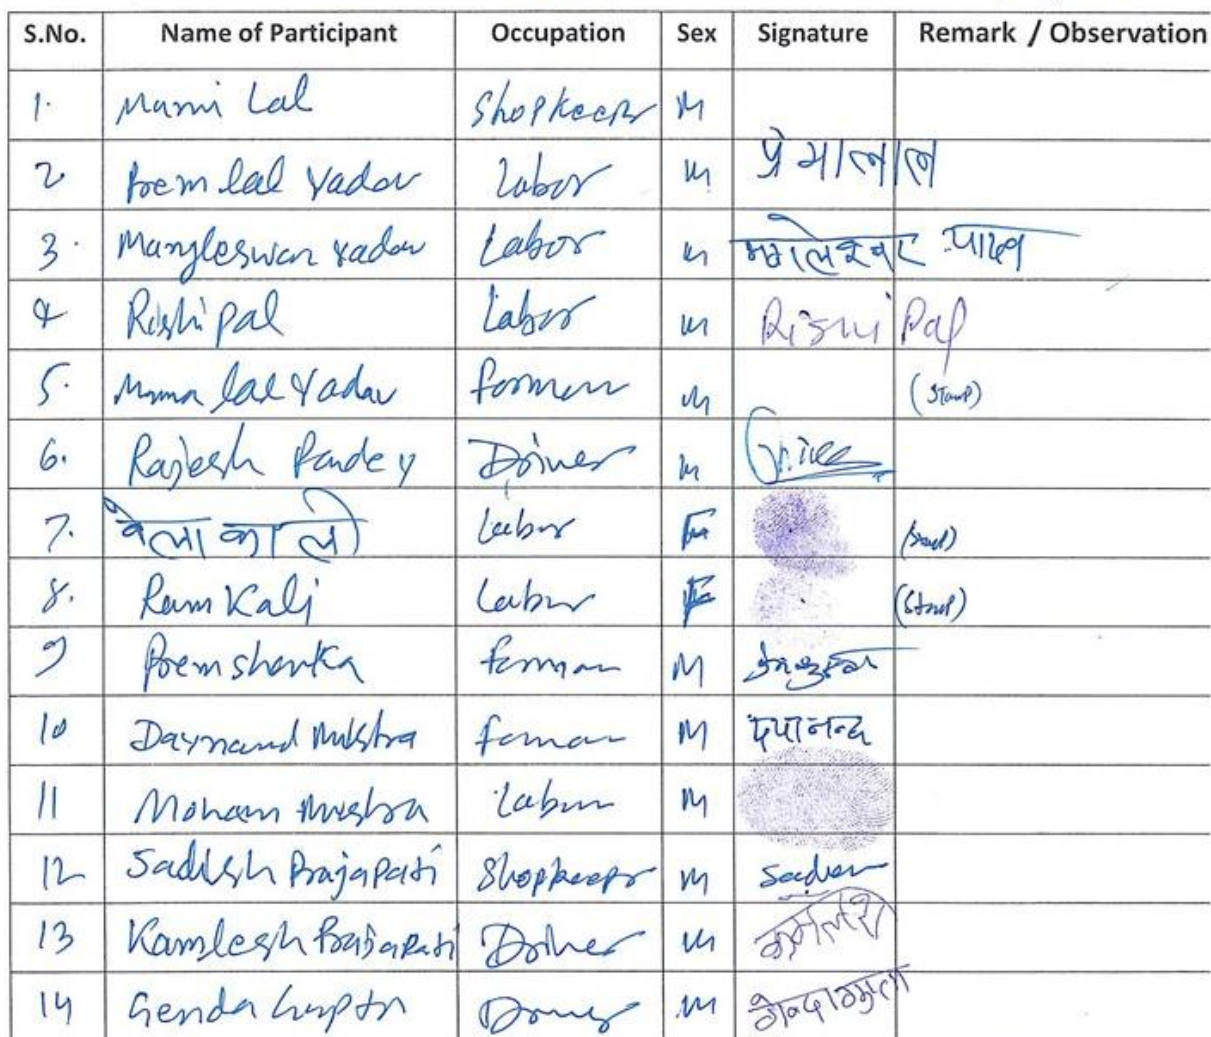 S.No. Name of Participant Occupation Sex Signature Remark / Observation
1. Manni Lal Shopkeeper M
2. Prem lal Yadav Labor M प्रेमालाल
3. Mangleswar Yadav Labor M
4 Rishi pal Labor M Rishi Pal
5. lal Yadav M (Stamp)
6. Rajesh Pandey Driver M
7. Labor F (Stamp)
8. Ram Kali Labor F (Stamp)
9 Premshanka M
10 Daynand Mishra M दयानन्द
11 Moham Mishra Labur M
12 Sadesh Prajapati Shopkeeper M
13 Kamlesh Prajapati Driver M कमलेश
14 Genda Gupta Driver M